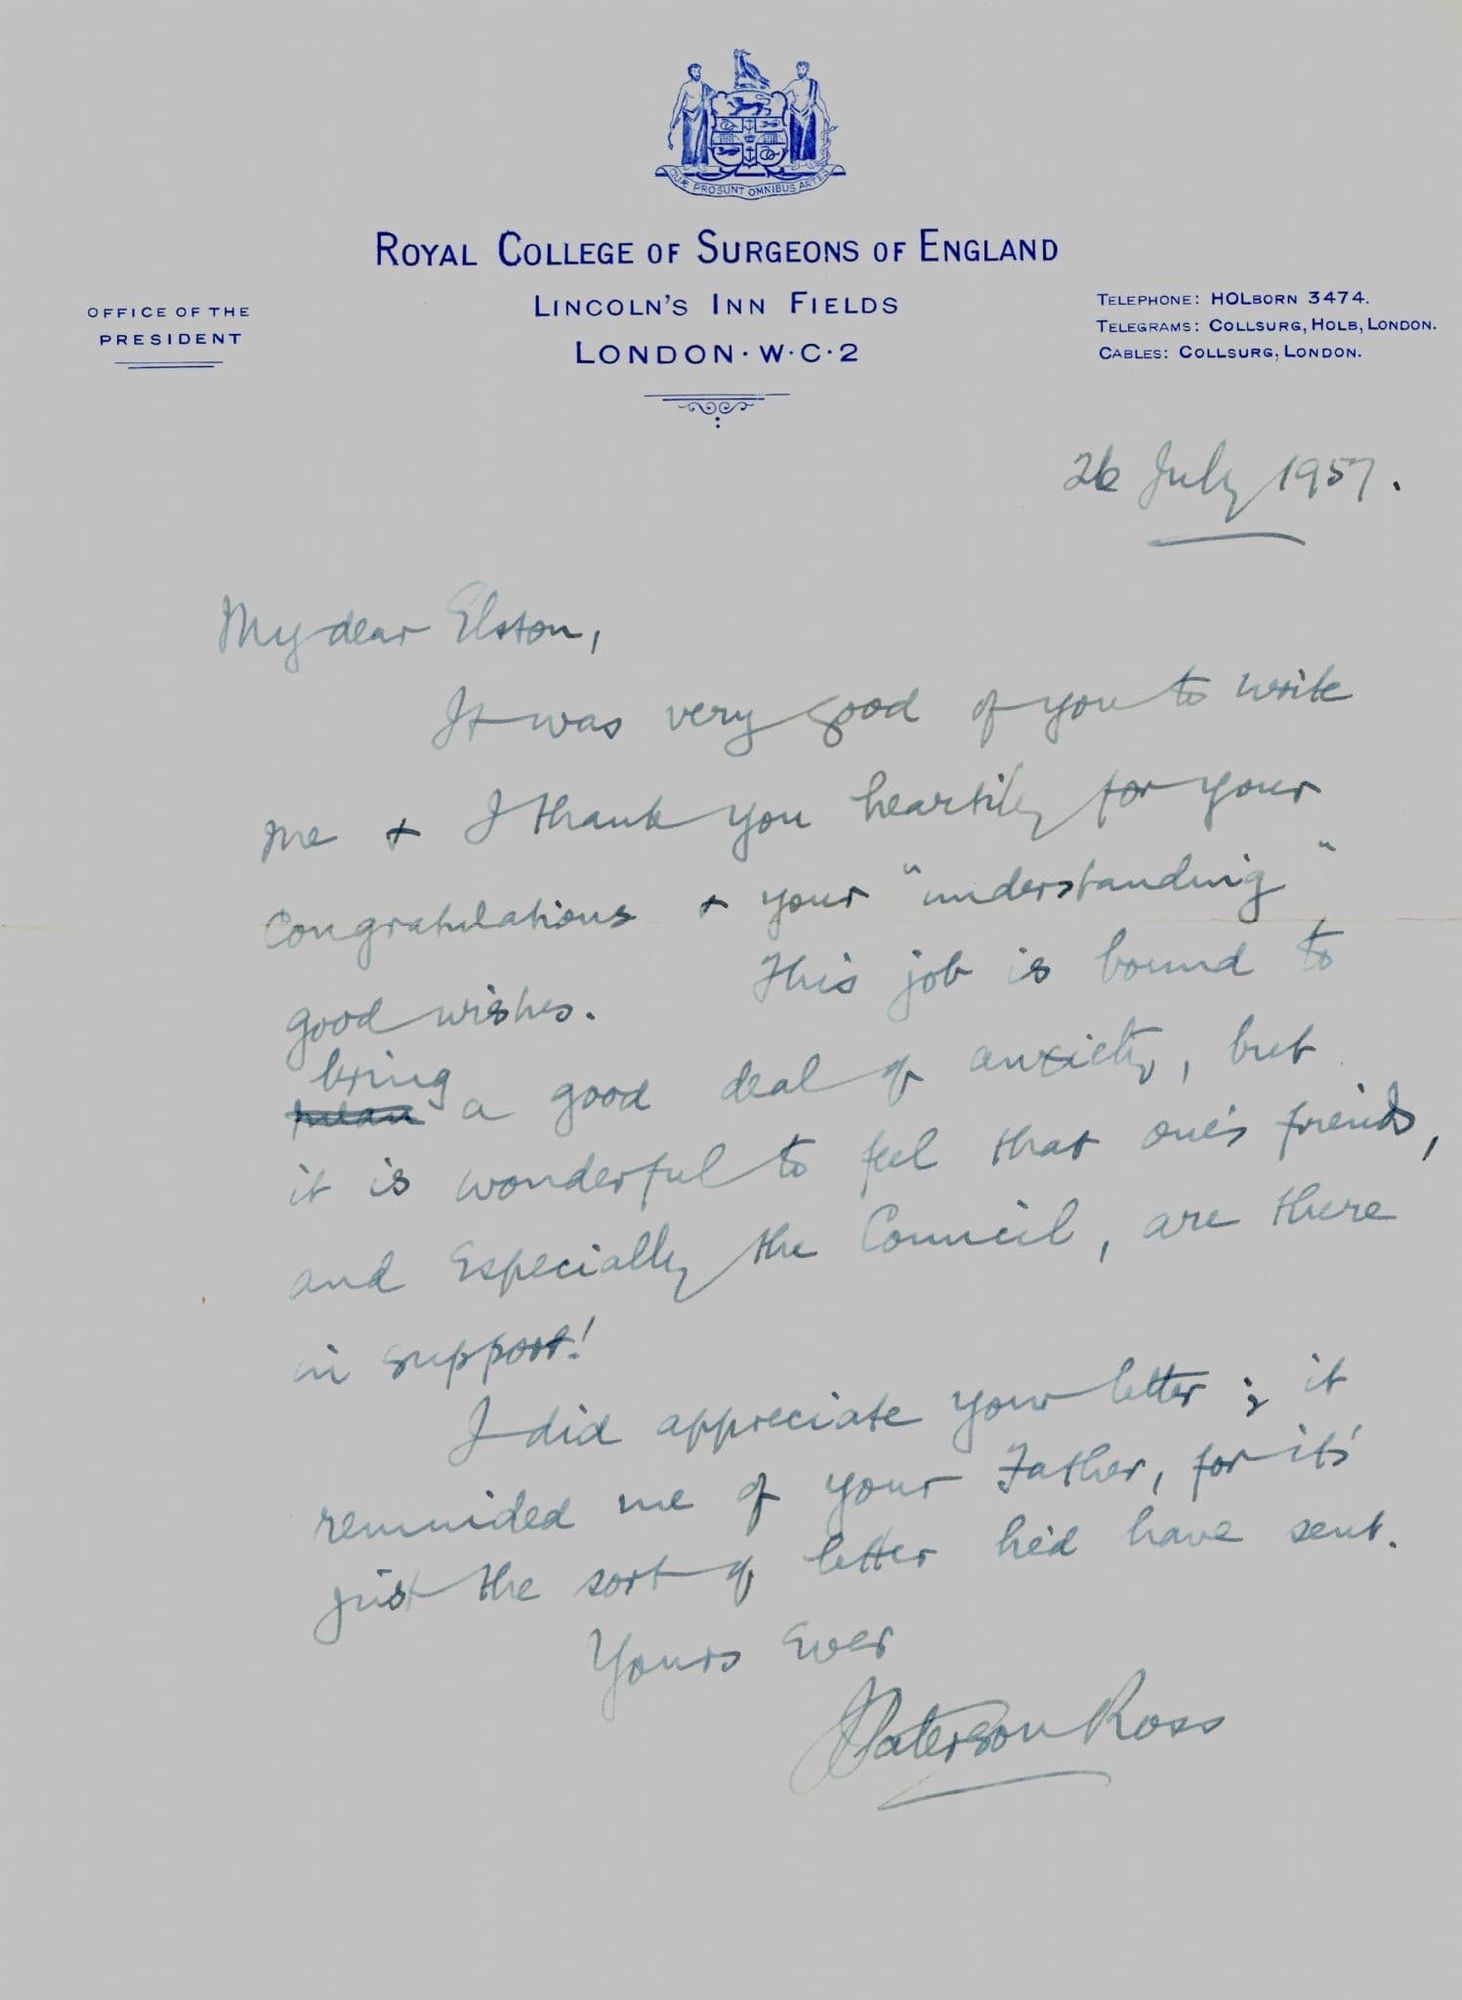 QUÆ PROSUNT OMNIBUS ARTES
ROYAL COLLEGE OF SURGEONS OF ENGLAND
LINCOLN'S INN FIELDS
LONDON · W·C·2
OFFICE OF THE
PRESIDENT
TELEPHONE: HOLBORN 3474.
TELEGRAMS: COLLSURG, HOLB, LONDON.
CABLES: COLLSURG, LONDON.
26 July 1957.
My dear Elston,
It was very good of you to write
me + I thank you heartily for your
congratulations + your "understanding"
good wishes. This job is bound to
bring
mean a good deal of anxiety, but
it is wonderful to feel that one's friends,
and especially the Council, are there
in support!
I did appreciate your letter; it
reminded me of your Father, for it's
just the sort of letter he'd have sent.
Yours Ever
J Paterson Ross